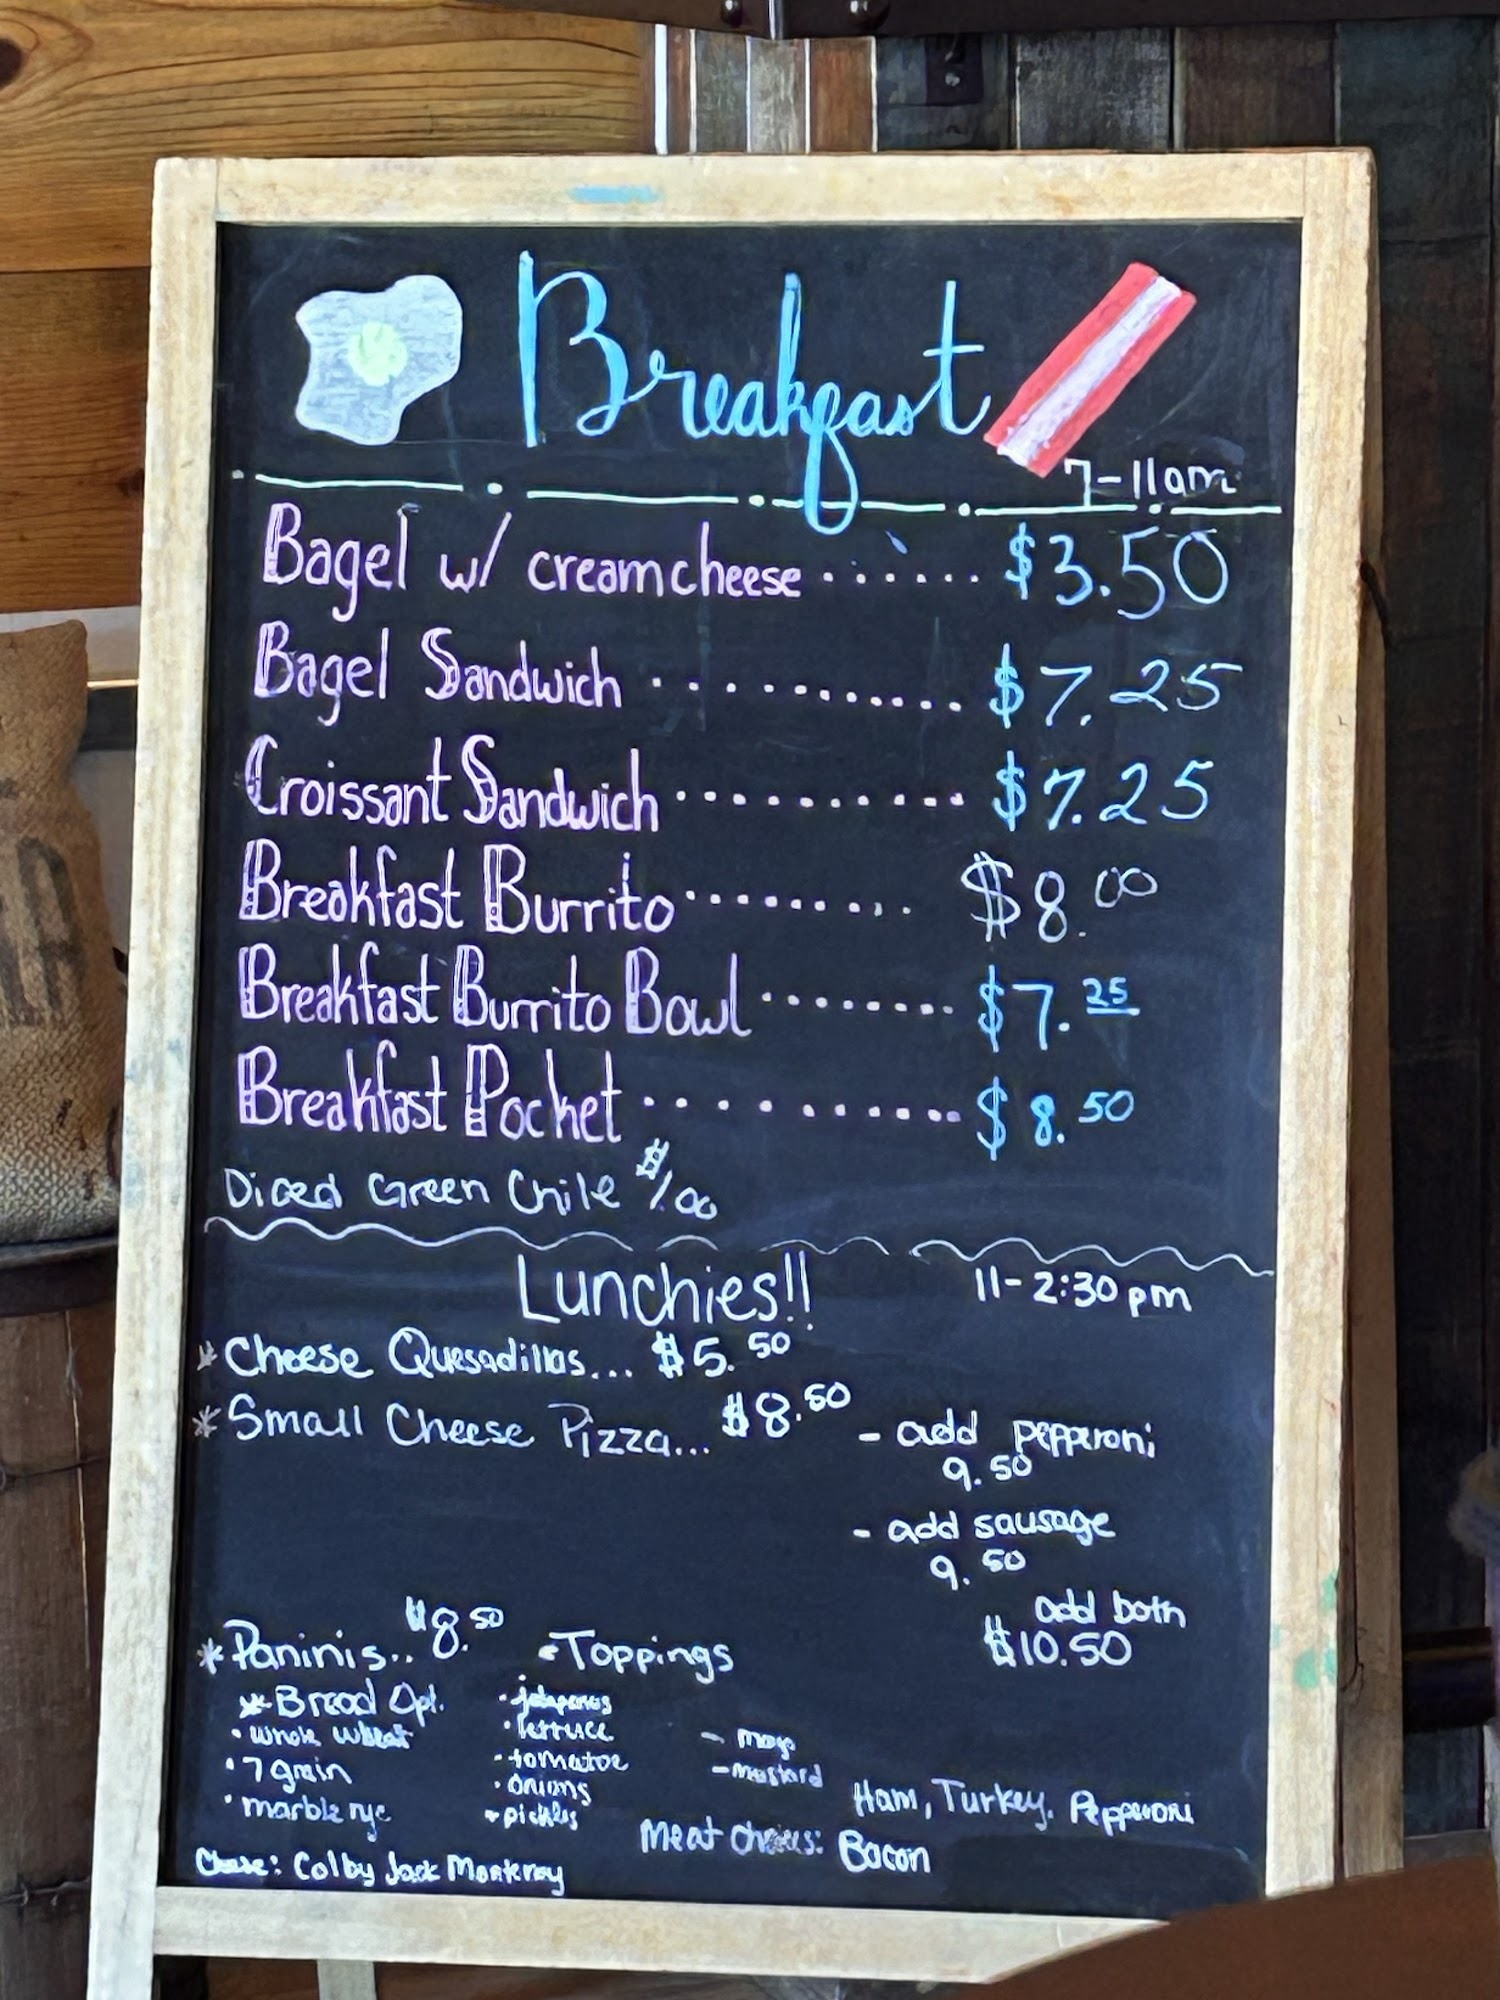 Breakfast
7-11am
Bagel w/ creamcheese ...... $3.50
Bagel Sandwich ........... $7.25
Croissant Sandwich .......... $7.25
Breakfast Burrito ......... $8.00
Breakfast Burrito Bowl ........ $7.25
Breakfast Pocket .......... $8.50
Diced Green Chile $1.00
Lunchies!! 11-2:30pm
* Cheese Quesadillas... $5.50
* Small Cheese Pizza... $8.50
- add pepperoni
9.50
- add sausage
9.50
add both
$10.50
* Paninis.. $8.50
** Bread Opt.
· whole wheat
· 7 grain
· marble rye
Cheese: Colby Jack Monterey
- Toppings
· jalapenos
· lettuce
· tomatoe
· onions
· pickles
- mayo
- mustard
Ham, Turkey, Pepperoni
Meat choices: Bacon